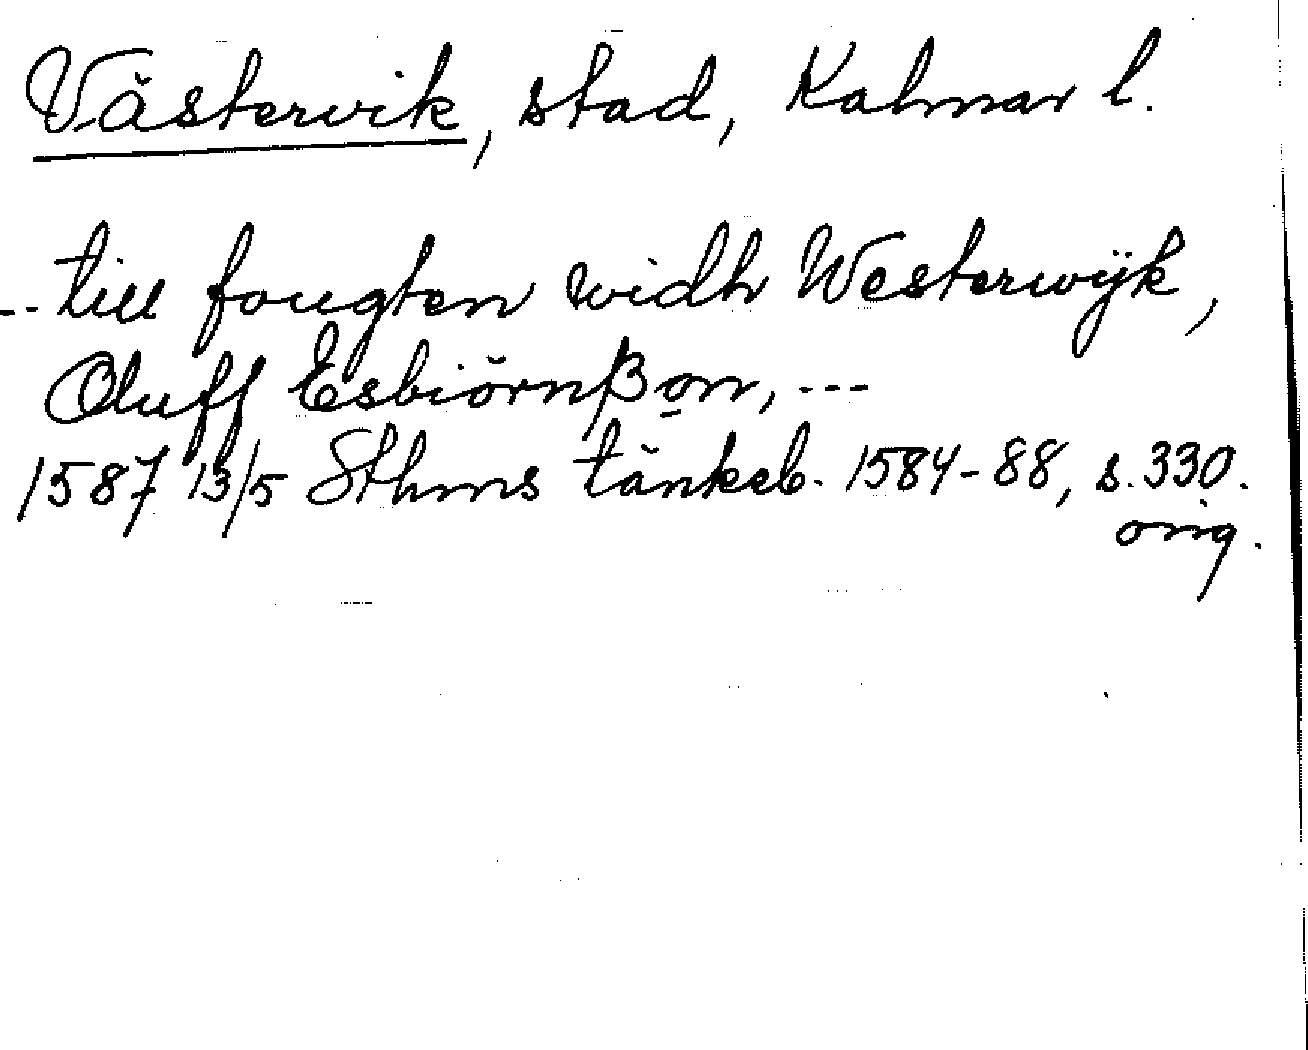 Västervik, stad, Kalmar l.
-- till fougten widh Westerwÿk,
Oluff EsbiörnßOn, ---
1587 13/5 Sthms tänkeb. 1584-88, s. 330.
orig.